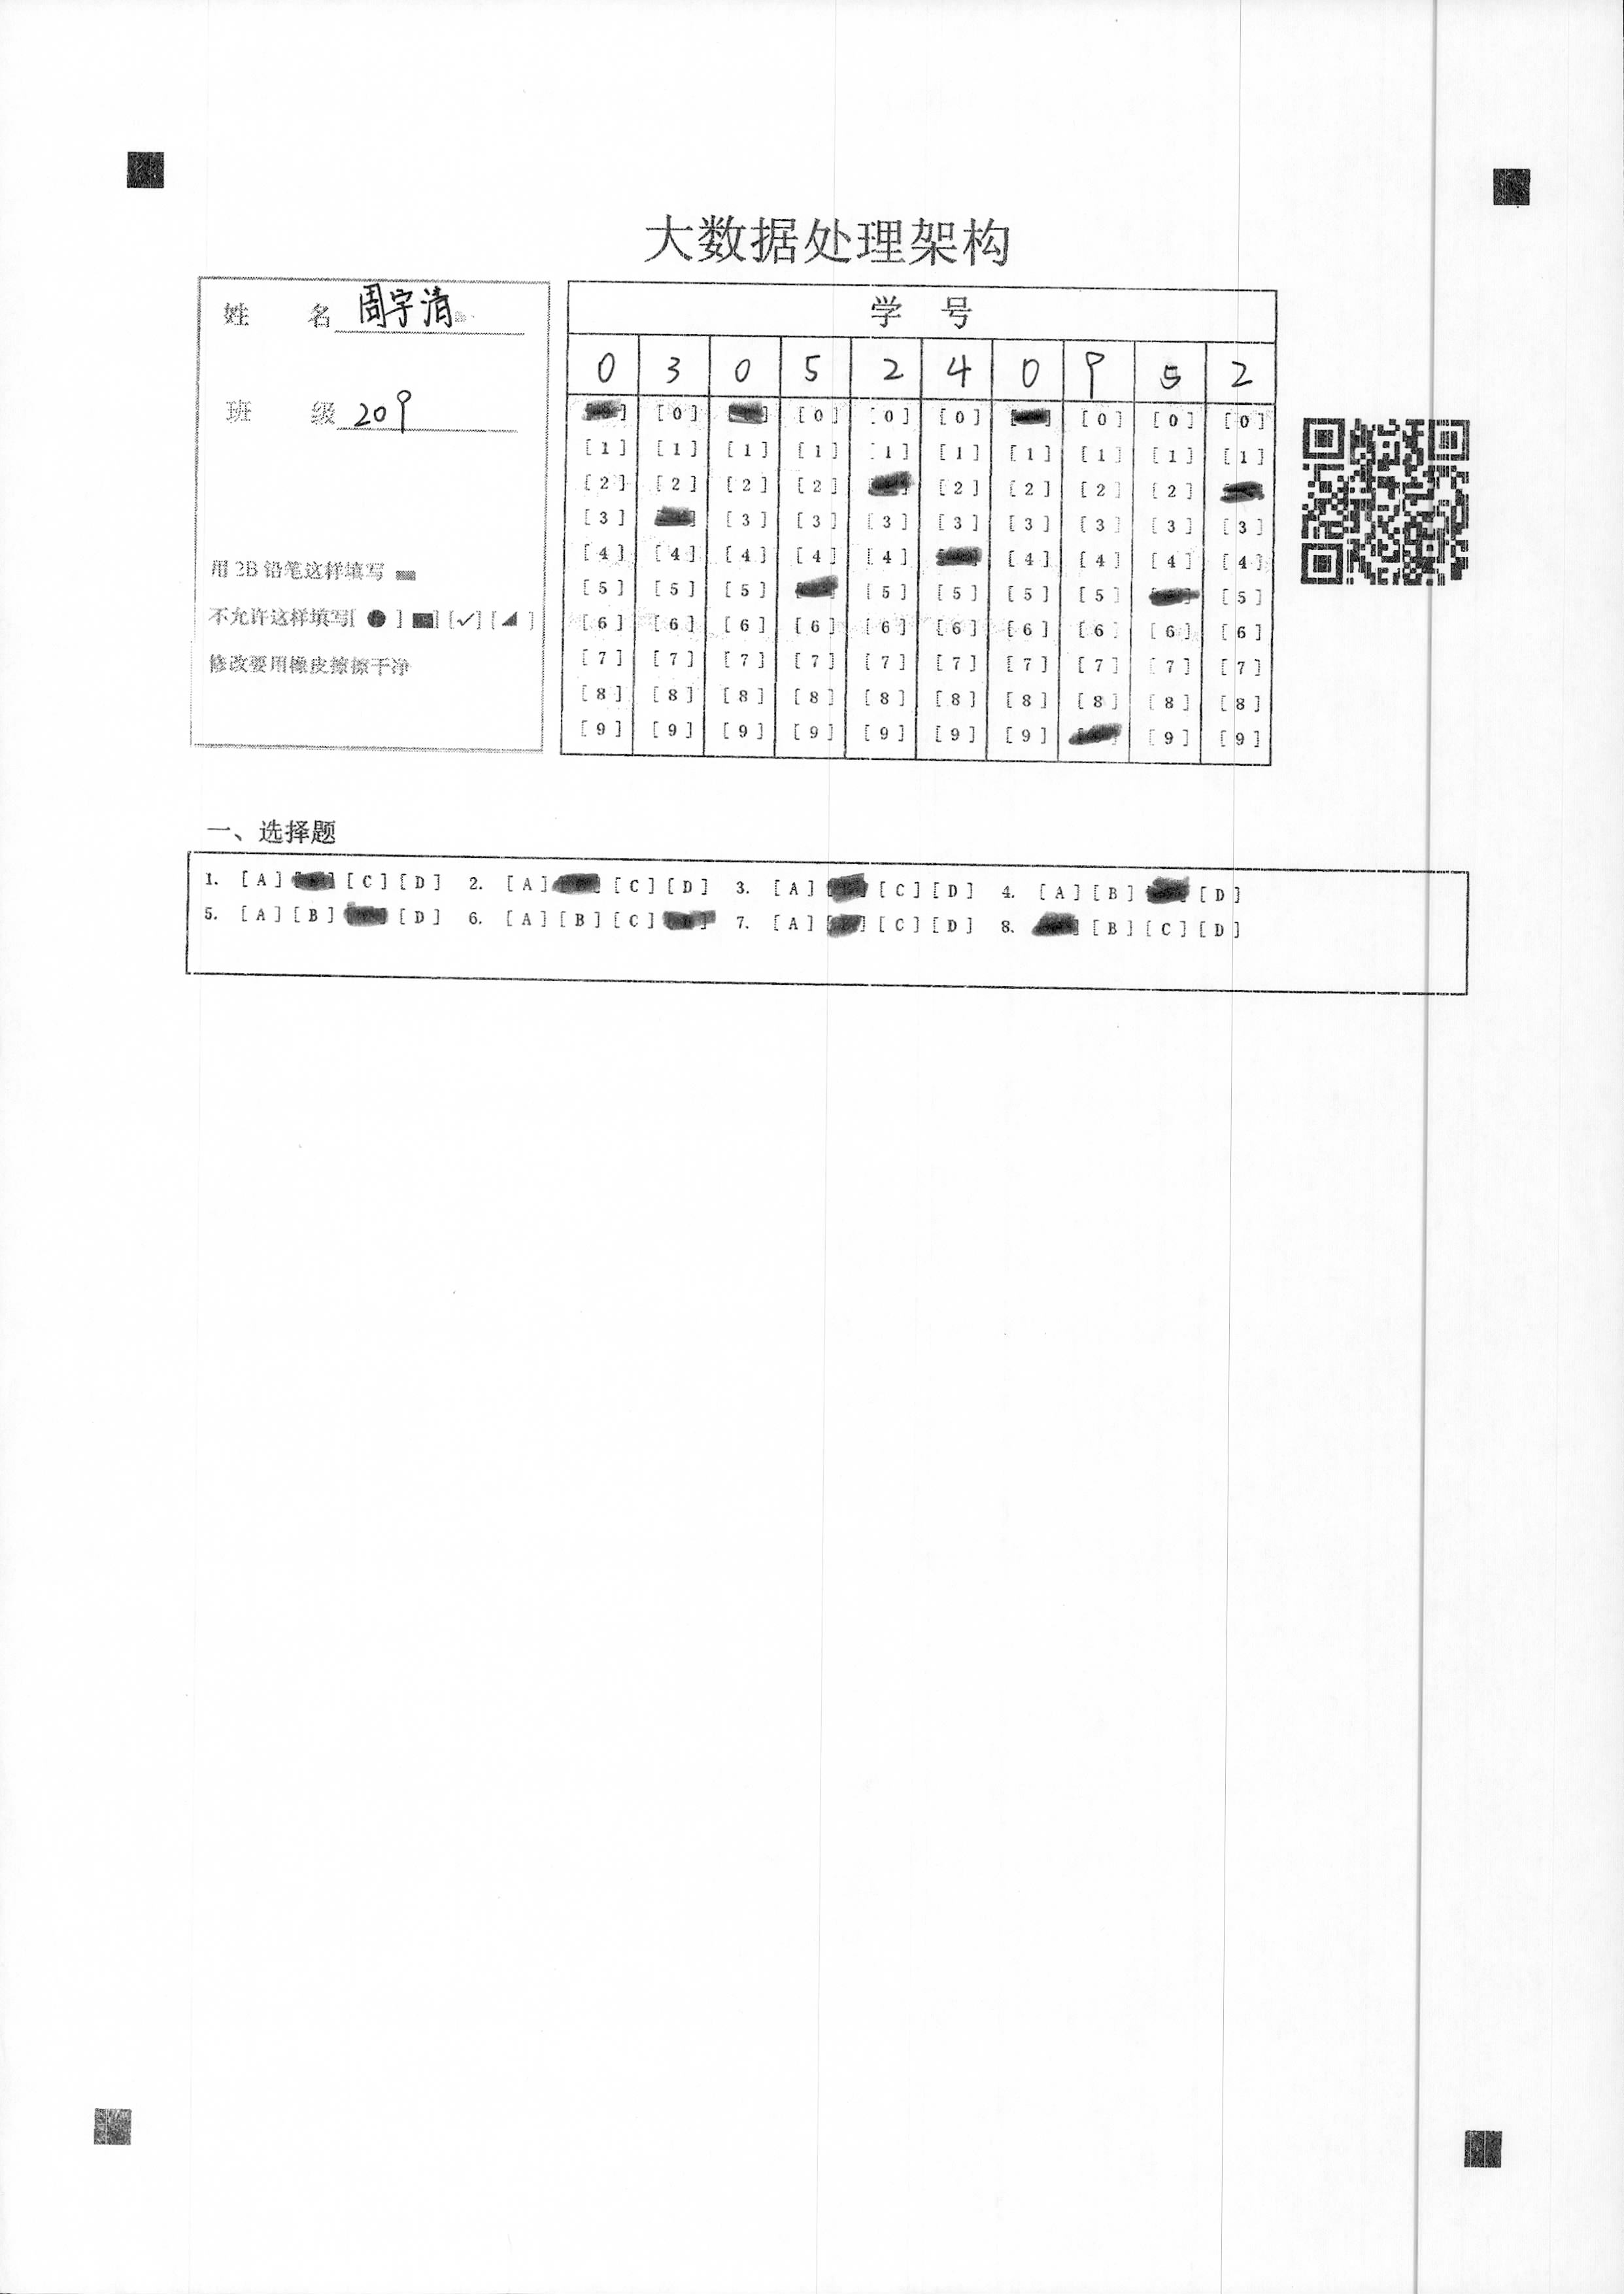 大数据处理架构
姓 名 周宇清
班 级 209
用 2B 铅笔这样填写
不允许这样填写[ ● ] ■] [✓] [◢ ]
修改要用橡皮擦擦干净
学 号
0 3 0 5 2 4 0 9 5 2
[0] [0] [0] [0] [0] [0] [0]
[1] [1] [1] [1] [1] [1] [1] [1] [1] [1]
[2] [2] [2] [2] [2] [2] [2] [2]
[3] [3] [3] [3] [3] [3] [3] [3] [3]
[4] [4] [4] [4] [4] [4] [4] [4] [4]
[5] [5] [5] [5] [5] [5] [5] [5]
[6] [6] [6] [6] [6] [6] [6] [6] [6] [6]
[7] [7] [7] [7] [7] [7] [7] [7] [7] [7]
[8] [8] [8] [8] [8] [8] [8] [8] [8] [8]
[9] [9] [9] [9] [9] [9] [9] [9] [9]
一、选择题
1. [A] [C] [D] 2. [A] [C] [D] 3. [A] [C] [D] 4. [A] [B] [D]
5. [A] [B] [D] 6. [A] [B] [C] 7. [A] [C] [D] 8. [B] [C] [D]